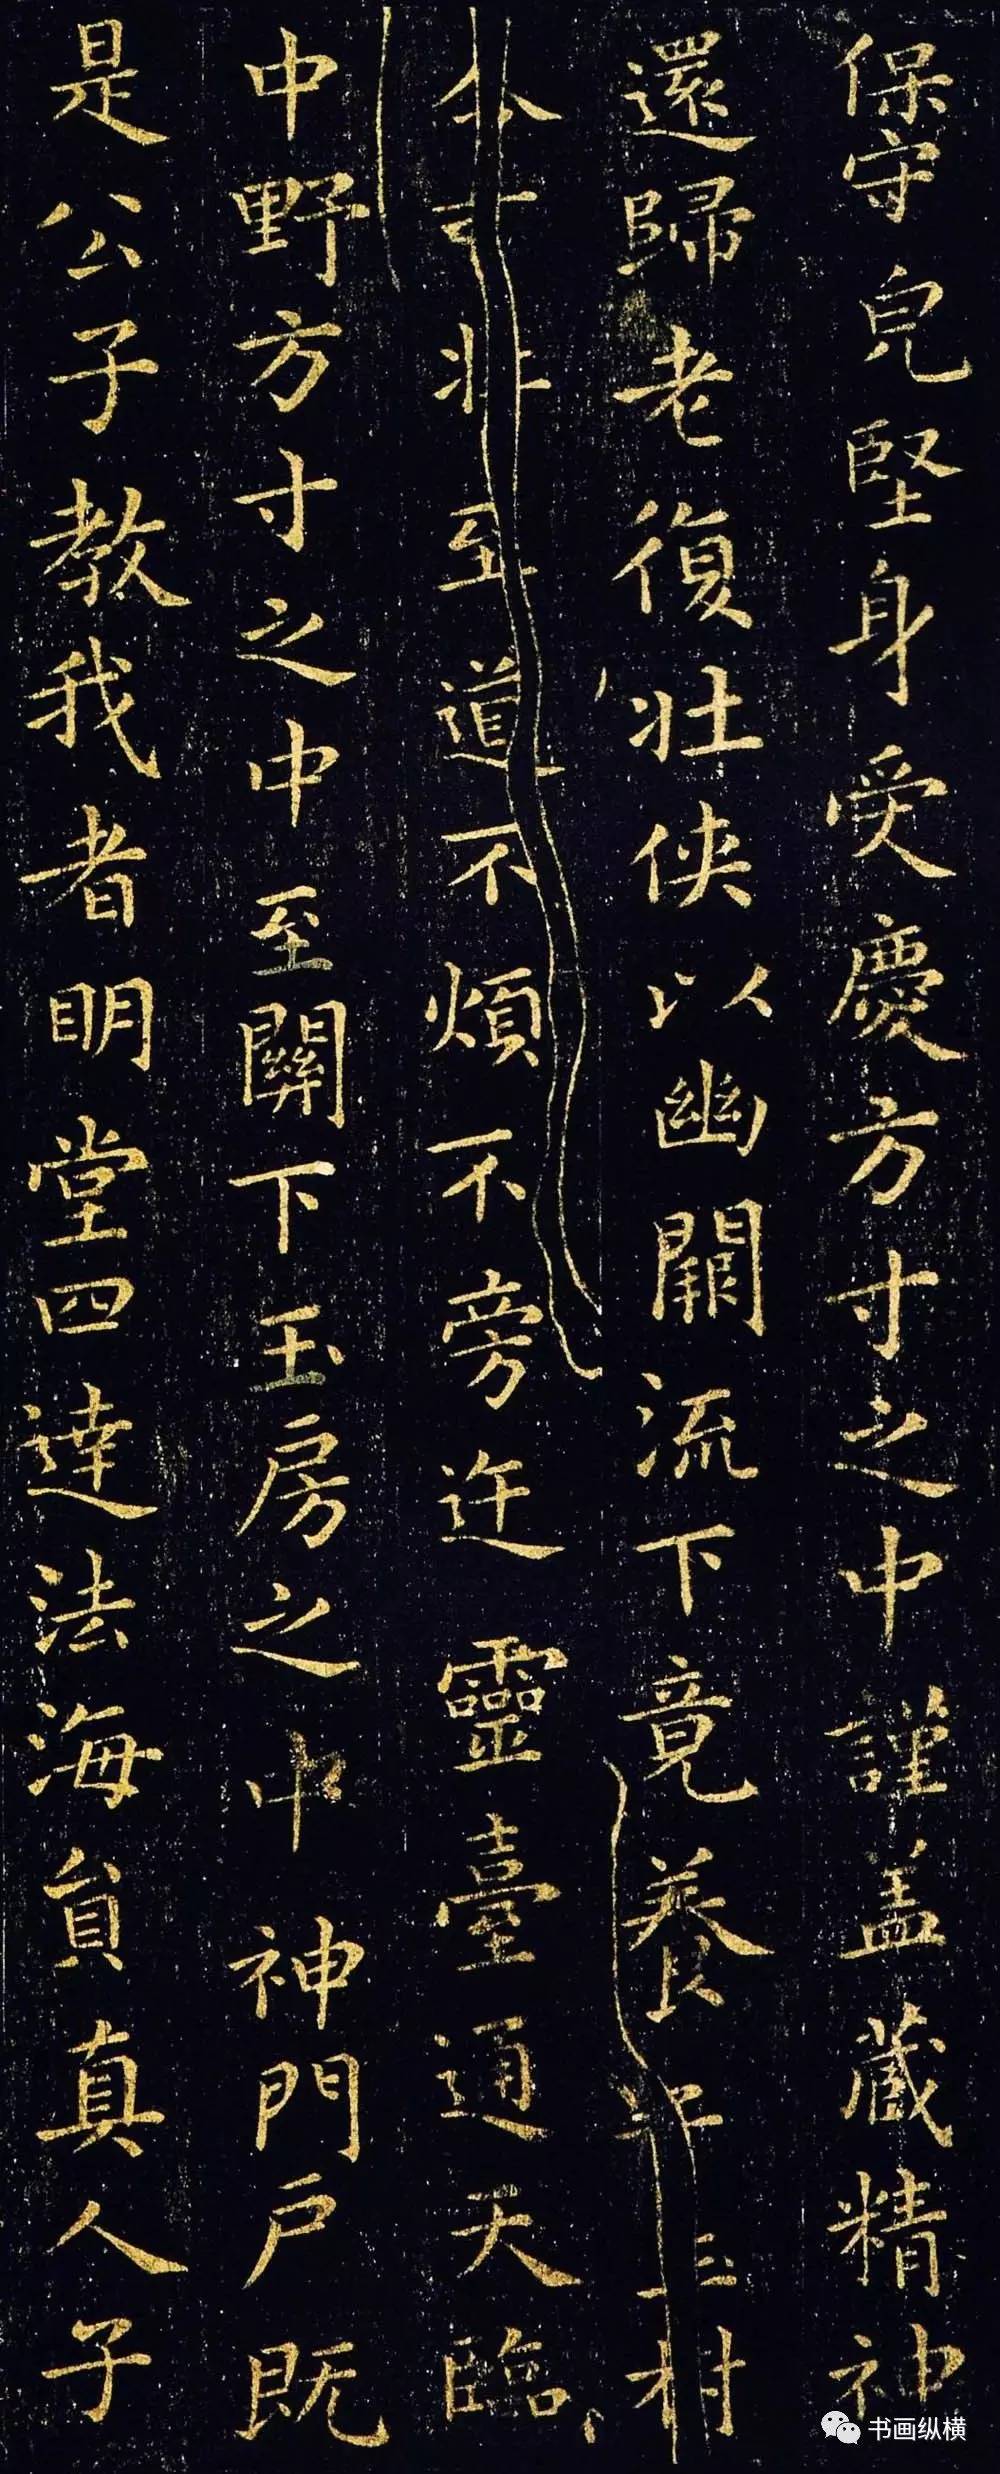 保守皃堅身受慶方寸之中謹盖藏精神
還歸老復壯俠以幽闕流下竟養
至道不煩不旁迕靈臺通天臨
中野方寸之中至關下玉房之中神門戶既
是公子教我者明堂四達法海員真人子
书画纵横